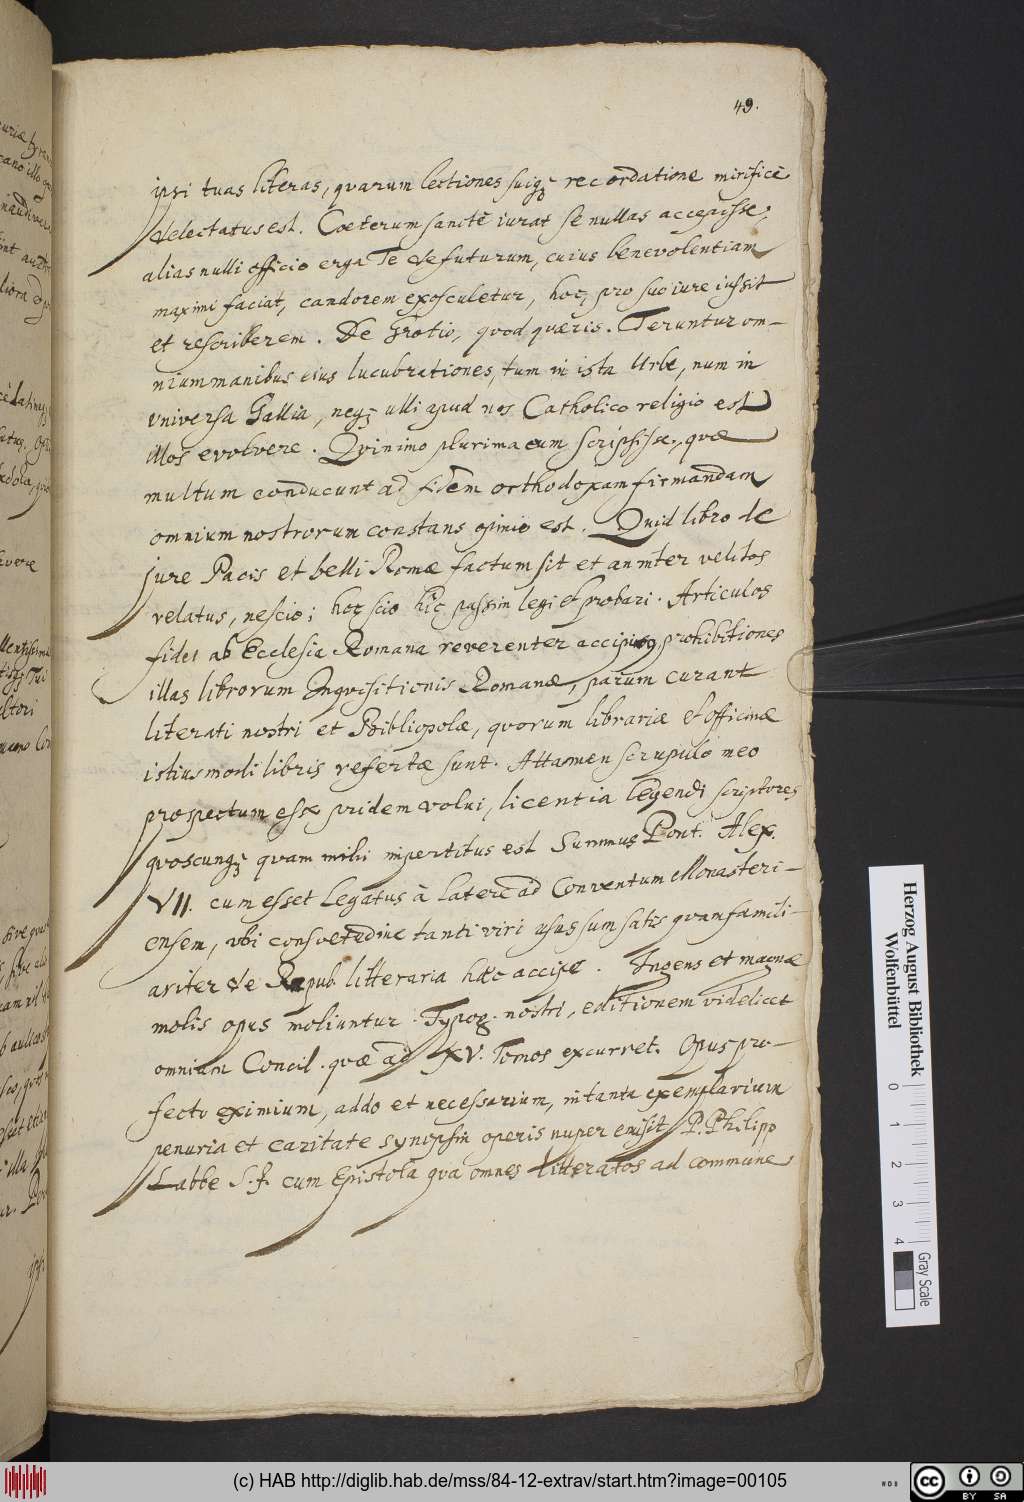 49.
ipsi tuas literas, quarum lectiones suiq; recordatione mirificè
delectatus est. Coeterum sanctè iurat se nullas accepisse,
alias nulli officio erga Te defuturum, cuius benevolentiam
maximi faciat, candorem exosculetur, hocq; pro suo iure iussit
et rescriberem. De Grotio, quod quæris. Teruntur om-
nium manibus eius lucubrationes, tum in ista Urbe, num in
universa Gallia, neq; ulli apud nos Catholico religio est
illos evolvere. Quinimo plurima eum scripsisse, quæ
multum conducunt ad fidem orthodoxam firmandam
omnium nostrorum constans opinio est. Quid libro de
jure Pacis et belli Romæ factum sit et an inter velitos
relatus, nescio; hoc scio hîc passim legi et probari. Articulos
fidei ab Ecclesia Romana reverenter accipimus, prohibitiones
illas librorum Inquisitionis Romanæ, parum curant
literati nostri et Bibliopolæ, quorum librariæ et officinæ
istiusmodi libris refertæ sunt. Attamen scrupulo meo
prospectum esse pridem volui, licentia legendi scriptores
quoscunq; quam mihi impertitus est Summus Pont. Alex.
VII. cum esset Legatus à latere ad Conventum Monasteri-
ensem, ubi consuetudine tanti viri usus sum satis quam famili-
ariter de Repub. litteraria hæc accipe. Ingens et magnæ
molis opus moliuntur Typog. nostri, editionem videlicet
omnium Concil. quæ ad XV. Tomos excurret. Opus pro-
fecto eximium, addo et necessarium, in tanta exemplarium
penuria et caritate synopsin operis nuper emisit P. Philipp
Labbe S. J. cum Epistola qua omnes litteratos ad commune
Herzog August Bibliothek
Wolfenbüttel
0 1 2 3 4
Gray Scale
(c) HAB http://diglib.hab.de/mss/84-12-extrav/start.htm?image=00105
cc BY SA